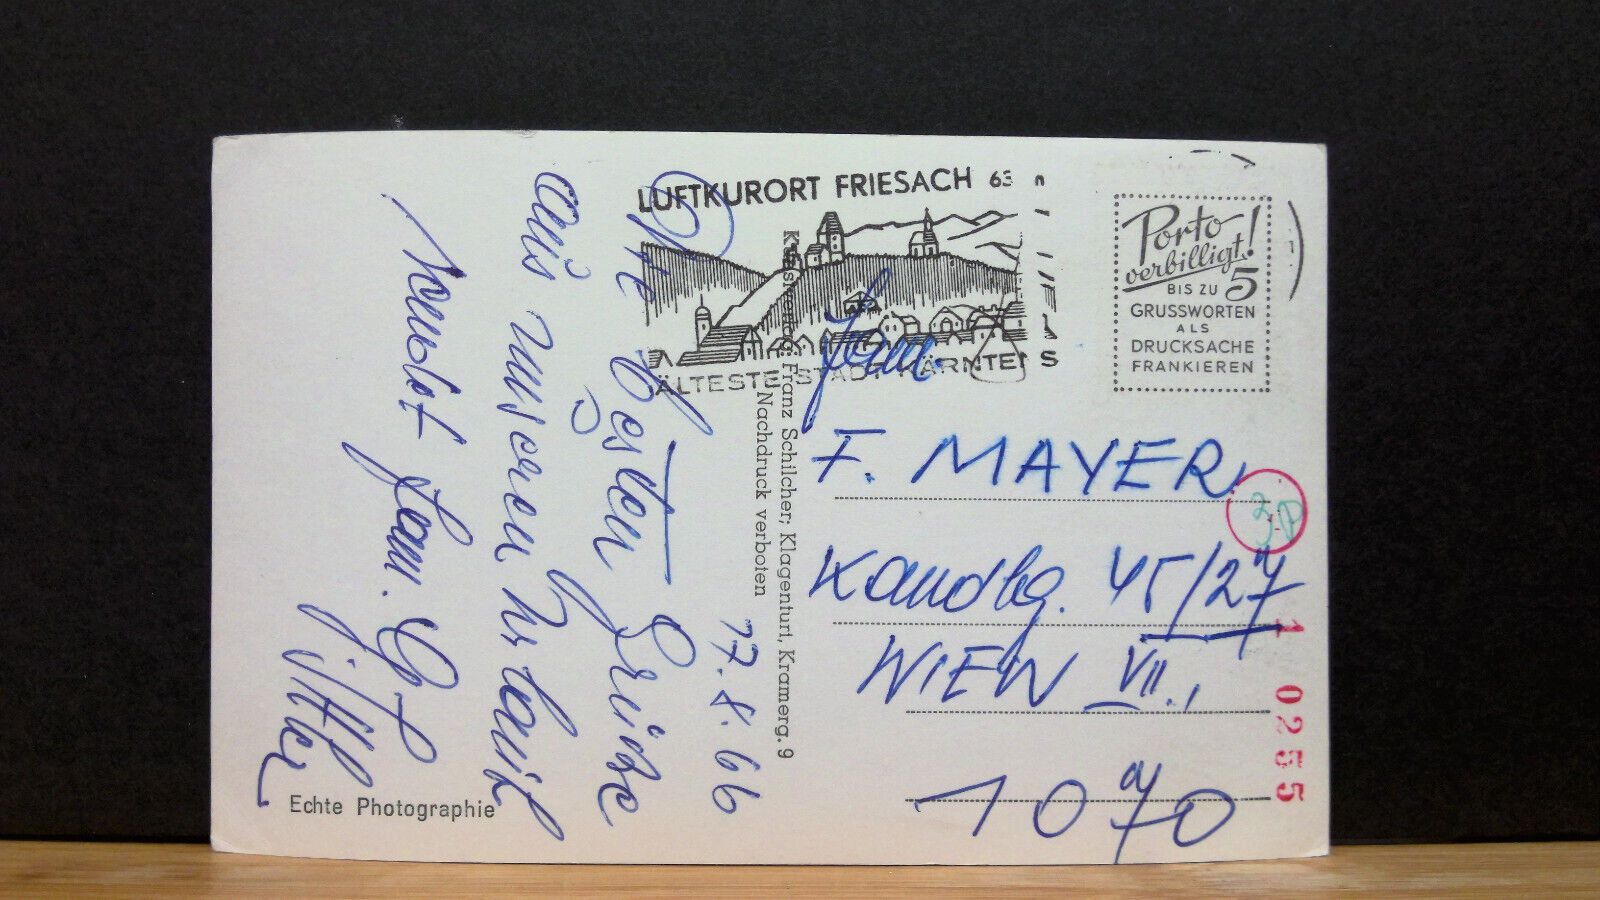 LUFTKURORT FRIESACH 63
ÄLTESTE STADT KÄRNTENS
Porto
verbilligt!
BIS ZU 5
GRUSSWORTEN
ALS
DRUCKSACHE
FRANKIEREN
17.8.66
Die besten Grüße
aus unseren Urlaub
Fam.
F. MAYER
Kandlg. 45/27
WIEN VII.,
1070
Franz Schilcher; Klagenfurt, Kramerg. 9
Nachdruck verboten
Echte Photographie
1 0255